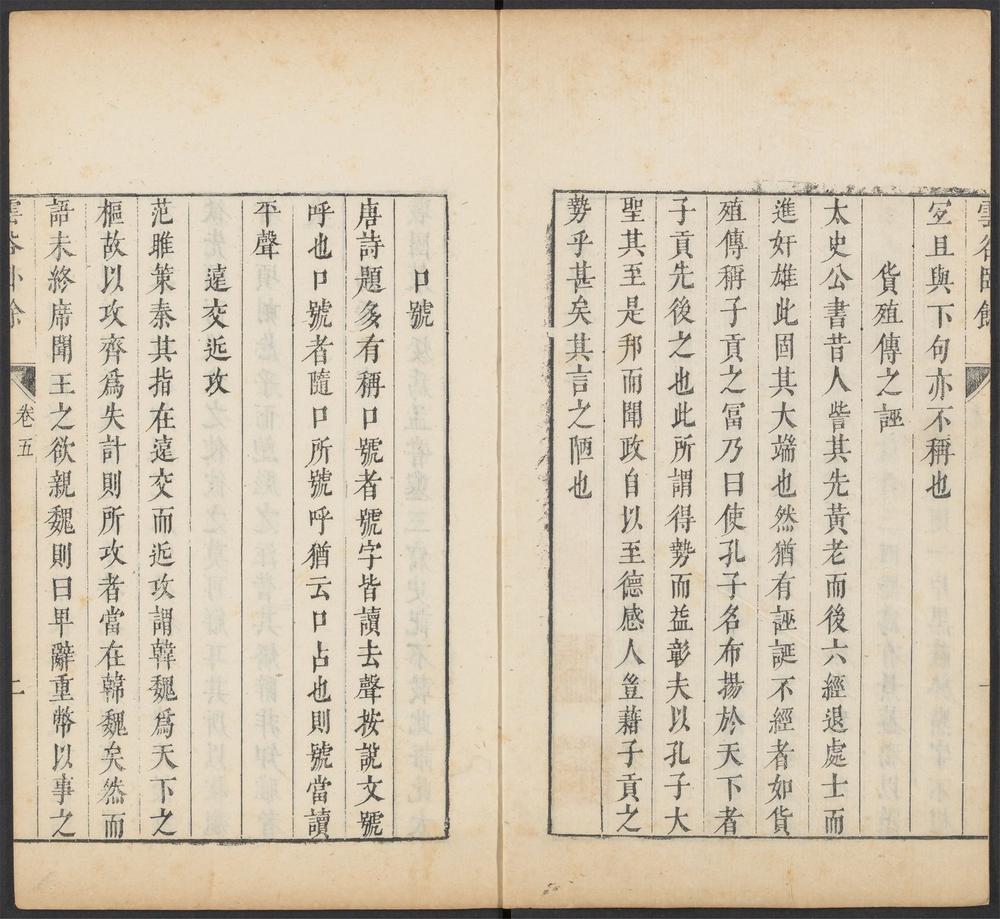 雲谷臥餘
一
定且與下句亦不稱也
貨殖傳之誣
太史公書昔人訾其先黃老而後六經退處士而
進奸雄此固其大端也然猶有誣誕不經者如貨
殖傳稱子貢之冨乃曰使孔子名布揚於天下者
子貢先後之也此所謂得勢而益彰夫以孔子大
聖其至是邦而聞政自以至德感人豈藉子貢之
勢乎甚矣其言之陋也
口號
唐詩題多有稱口號者號字皆讀去聲按說文號
呼也口號者隨口所號呼猶云口占也則號當讀
平聲
遠交近攻
范雎策秦其指在遠交而近攻謂韓魏爲天下之
樞故以攻齊爲失計則所攻者當在韓魏矣然而
語未終席聞王之欲親魏則曰卑辭重幣以事之
雲谷臥餘
卷五
二